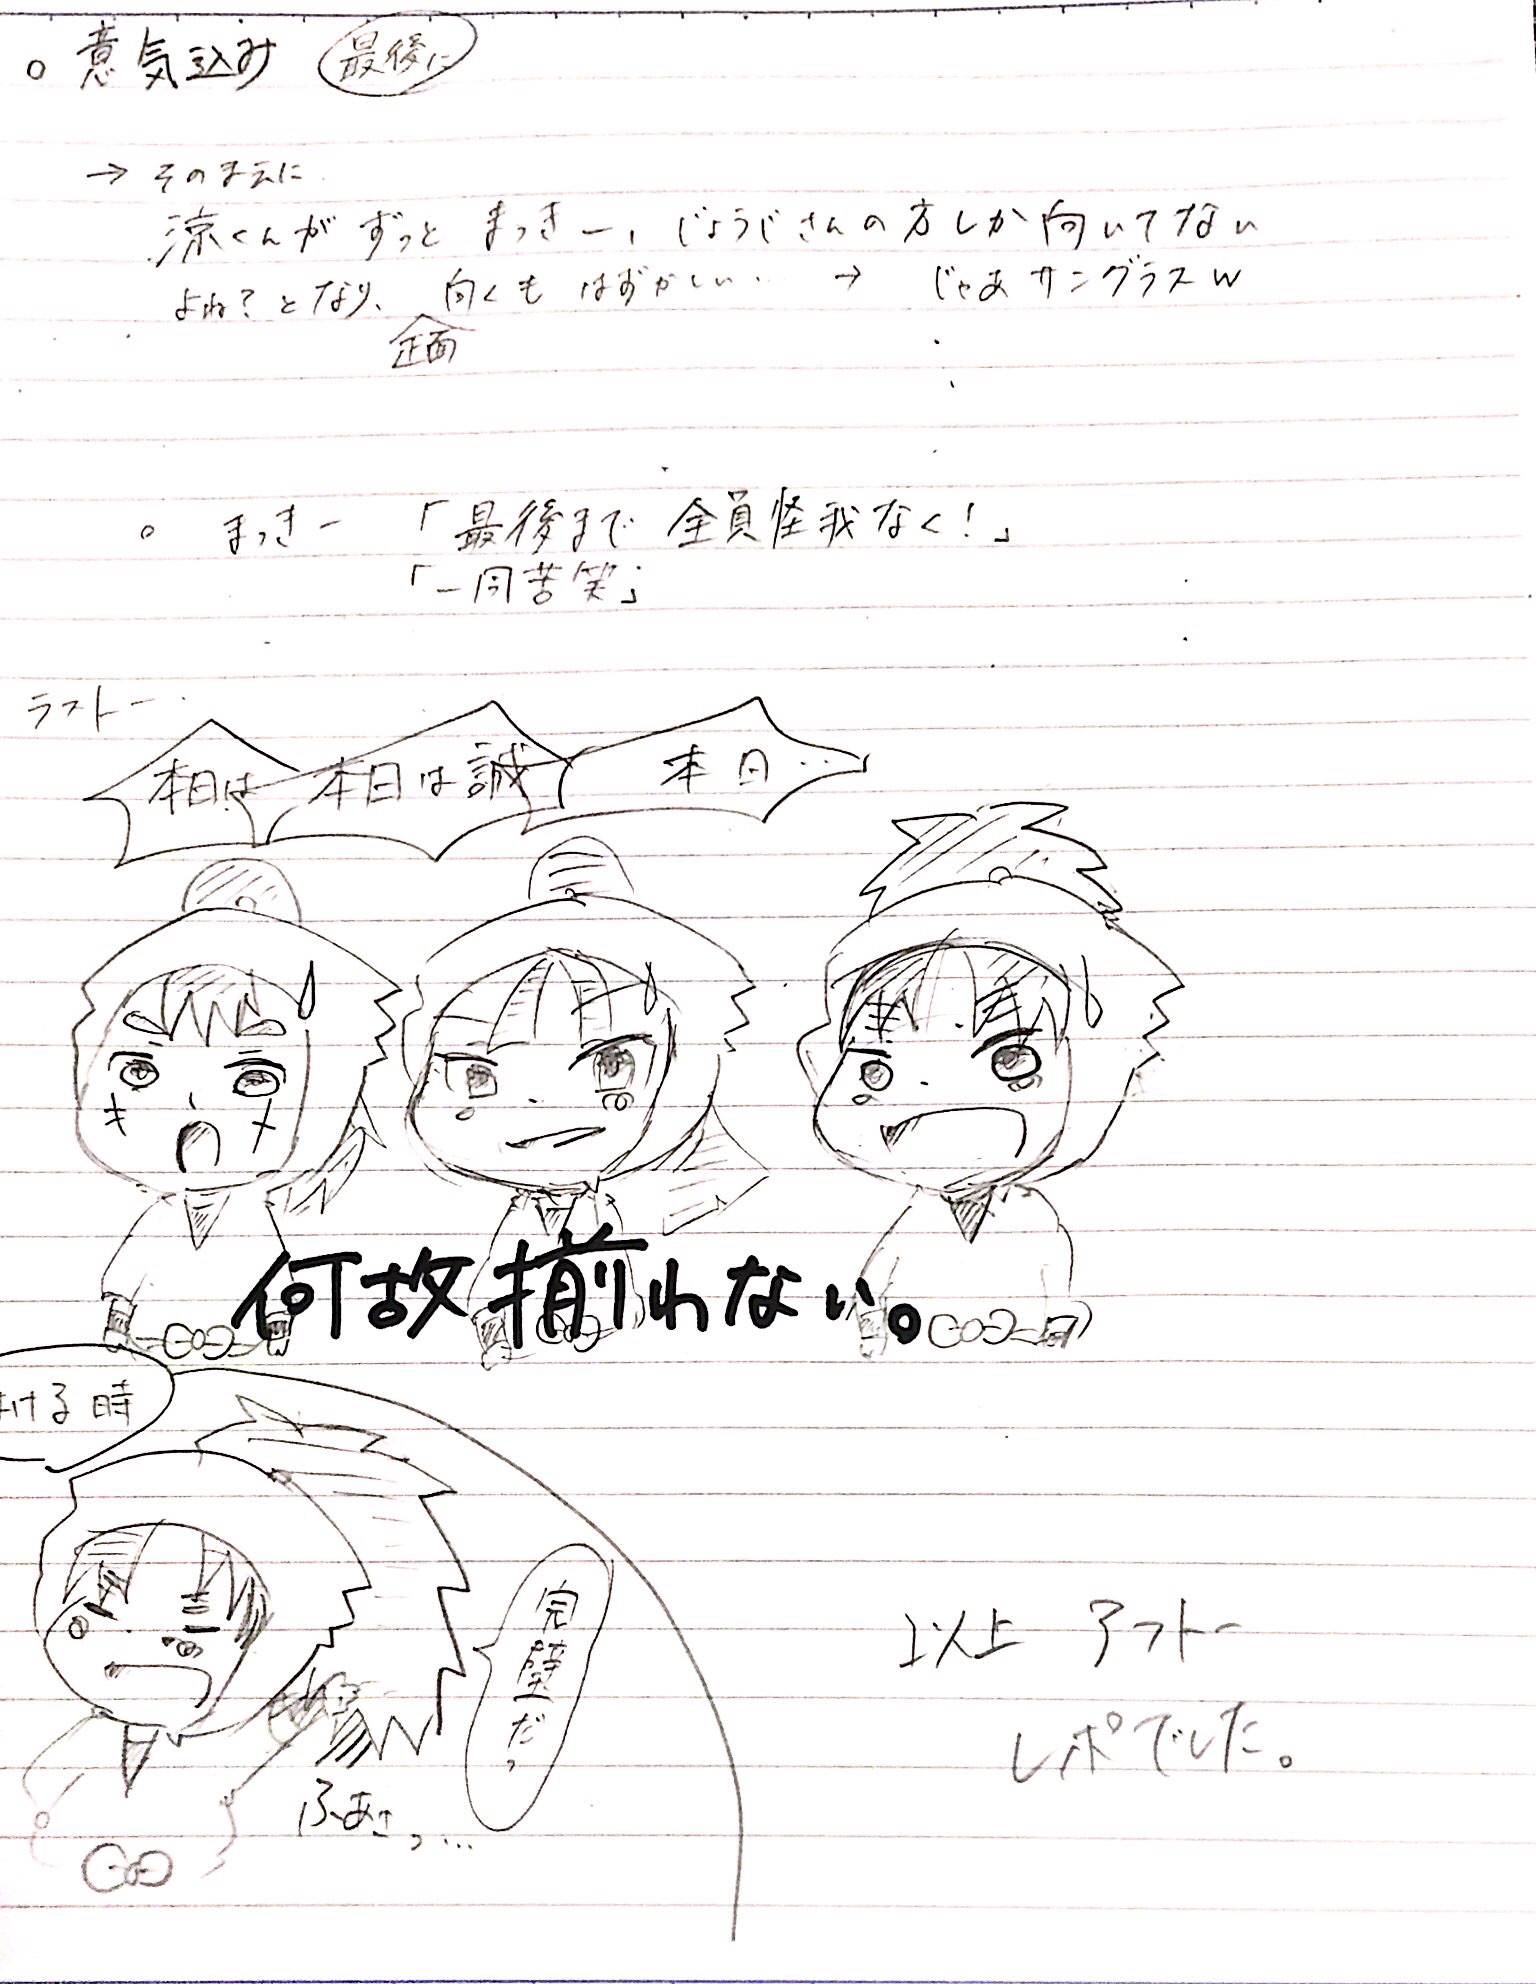 。意気込み 最後に
→ そのまえに
涼くんが ずっと まっきー、じょうじさんの方しか向いてない
よね?となり、向くも はずかしい.. → じゃあサングラスw
正面
。 まっきー 「最後まで 全員怪我なく!」
「一同苦笑」
ラストー
本日は 本日は誠 本日…
何故揃れない。
ける時
完璧だっ
ふぁさっ…
以上 アフトー
レポでした。